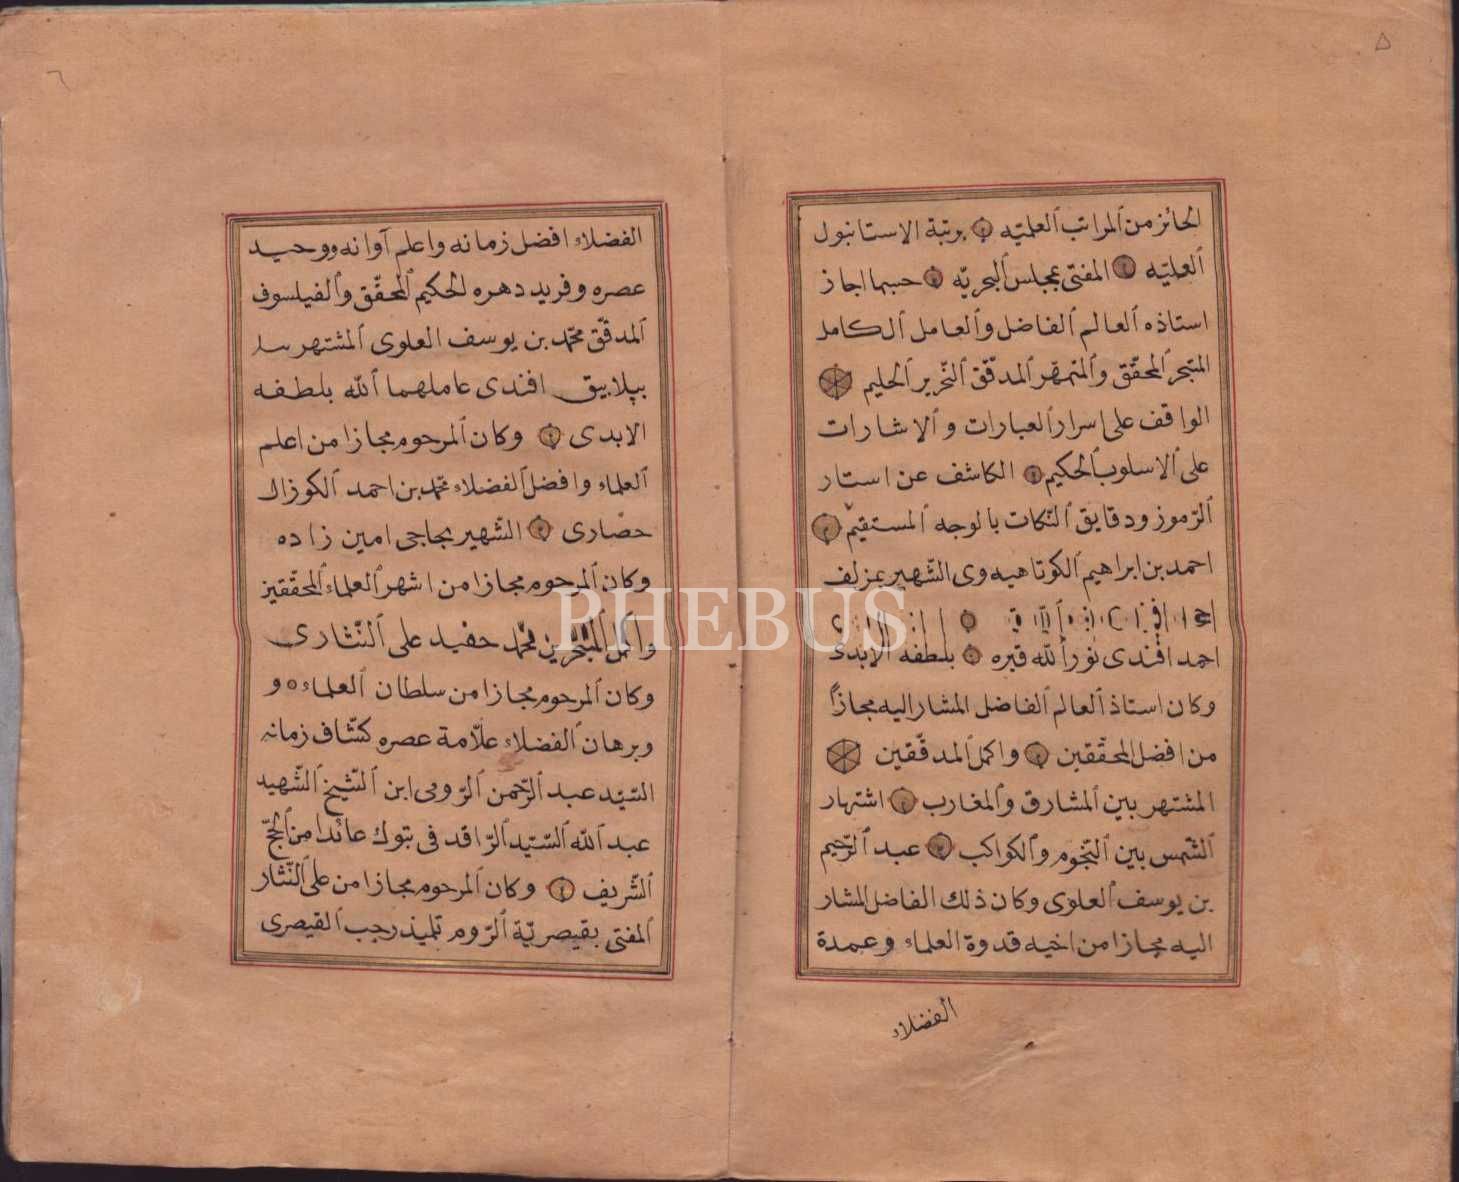 ٥
الحائز من المراتب العلميّه برتبة الاستانبول
العليّه المفتى بمجلس البحريّه حسبما اجاز
استاذه العالم الفاضل والعامل الكامل
المتبحر المحقّق والمتمهّر المدقّق النّحرير الحليم
الواقف على اسرار العبارات والاشارات
على الاسلوب الحكيم الكاشف عن استار
الرّموز ودقايق النّكات بالوجه المستقيم
احمد بن ابراهيم الكوتاهيه وى الشّهير بمزلف
احمد افندى نوّر اللّه قبره بلطفه الابدى
وكان استاذ العالم الفاضل المشار اليه مجازاً
من افضل المحقّقين واكمل المدقّقين
المشتهر بين المشارق والمغارب اشتهار
الشّمس بين النّجوم والكواكب عبد الرّحيم
بن يوسف العلوى وكان ذلك الفاضل المشار
اليه مجازا من اخيه قدوة العلماء وعمدة
الفضلاء
٦
الفضلاء افضل زمانه واعلم آوانه ووحيد
عصره وفريد دهره الحكيم المحقّق والفيلسوف
المدقّق محمّد بن يوسف العلوى المشتهر
افندى عاملهما اللّه بلطفه
الابدى وكان المرحوم مجازا من اعلم
العلماء وافضل الفضلاء محمّد بن احمد الكوزال
حصارى الشّهير بحاجى امين زاده
وكان المرحوم مجازا من اشهر العلماء المحقّقين
واكمل المتبحّرين محمّد حفيد على النّثارى
وكان المرحوم مجازا من سلطان العلماء و
وبرهان الفضلاء علّامة عصره كشّاف زمانه
السّيّد عبد الرّحمن الرّومى ابن الشّيخ الشّهيد
عبد اللّه السّيّد الرّاقد فى تبوك عائدا من الحجّ
الشّريف وكان المرحوم مجازا من على النّثار
المفتى بقيصريّة الرّوم تلميذ رجب القيصرى
PHEBUS